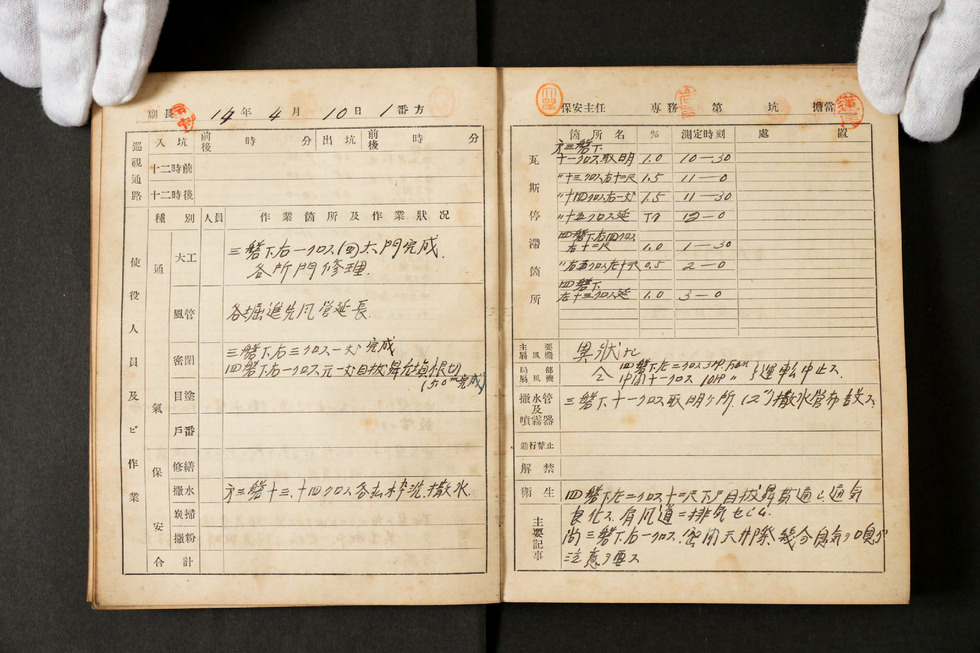 副長 14年4月10日1番方
巡視通路 入坑 前後 時 分 出坑 前後 時 分
十二時前
十二時後
使役人員及ビ作業
種別 人員 作業箇所及作業狀况
通氣
大工 三磐下右一クロス(西)大門完成
各所門修理
風管 各堀進先風管延長
密閉 三磐下右三クロス一片完成
四磐下右一クロス元一片目抜
(50m完成)
目塗
戶番
保安
修繕
撒水 方三磐十三、十四クロス各払枠洗、撒水
炭掃
撒粉
合計
保安主任 専務 第 坑 擔當
瓦斯停滯箇所
箇所名 % 測定時刻 處置
方三磐下
十一クロス取明 1.0 10-30
〃十三クロス右十二尺 1.5 11-0
〃十四クロス右一片 1.5 11-30
〃十五クロス延 12-0
四磐下右四クロス
右十二尺 1.0 1-30
〃右五クロス左十尺 0.5 2-0
四磐下
右十三クロス延 1.0 3-0
主要扇風機 異狀ナシ
局部扇風機 四磐下左二クロス 3HP.Fan
中間十一クロス 10HP 〃 運転中止ス
撒水管及噴霧器 三磐下十一クロス取明ヶ所(2")撒水管布設ス
通行禁止
解禁
衛生 四磐下左二クロス十二尺下ヨリ目抜昇貫通シ通気
良化ス
主要記事
尚三磐下右一クロス密閉天井際幾分臭気ヲ嗅グ
注意ヲ要ス